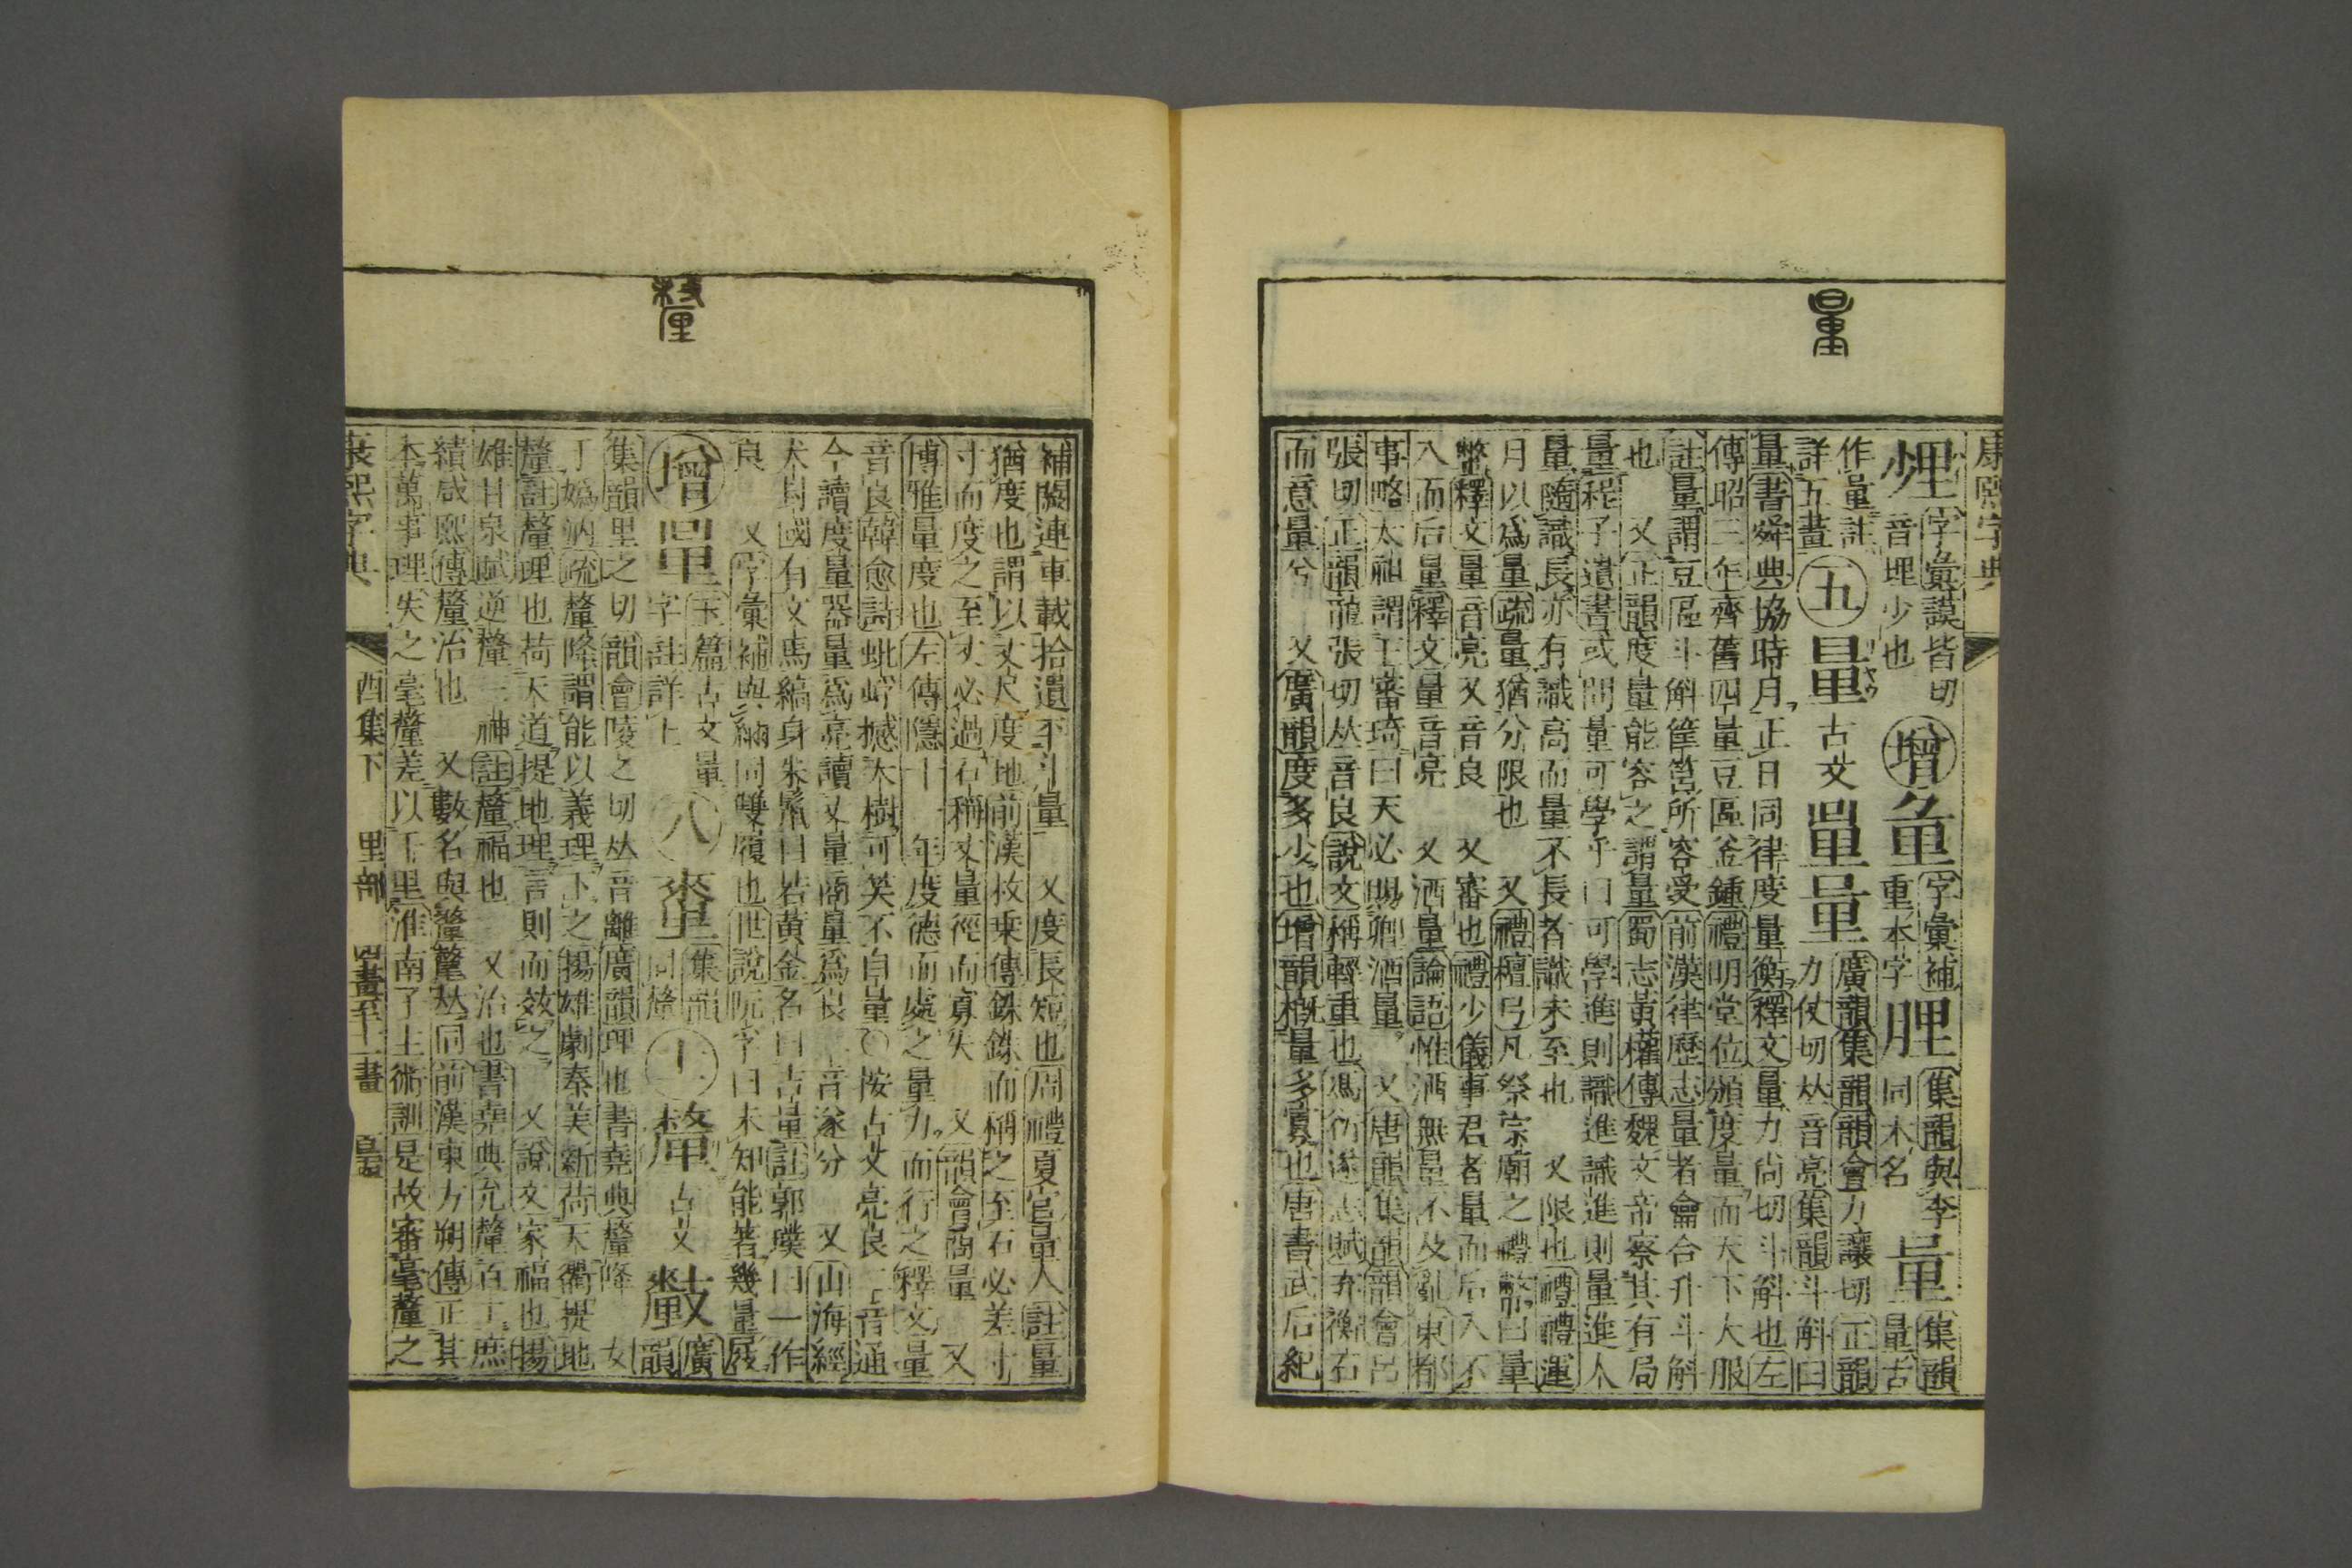 量
康熙字典
𡮰字彙謨皆切音埋少也增𡍺字彙補重本字𦚓集韻與李同木名𣆊集韻量古
作量註詳五畫五量古文𣊫𣊩廣韻集韻韻會力讓切正韻力仗切𠀤音亮集韻斗斛曰
量書舜典協時月正日同律度量衡釋文量力尚切斗斛也左
傳昭三年齊舊四量豆區釜鍾禮明堂位頒度量而天下大服
註量謂豆區斗斛筐筥所容受前漢律歷志量者龠合升斗斛
也 又正韻度量能容之謂量蜀志黃權傳魏文帝察其有局
量程子遺書或問量可學乎曰可學進則識進識進則量進人
量隨識長亦有識高而量不長者識未至也 又限也禮禮運
月以爲量疏量猶分限也 又禮檀弓凡祭宗廟之禮幣曰量
幣釋文量音亮又音良 又審也禮少儀事君者量而后入不
入而后量釋文量音亮 又酒量論語惟酒無量不及亂東都
事略太祖謂王審琦曰天必賜卿酒量 又唐韻集韻韻會呂
張切正韻龍張切𠀤音良說文稱輕重也馮衍遂志賦弃衡石
而意量兮 又廣韻度多少也增韻槪量多寡也唐書武后紀
釐
補闕連車載拾遺平斗量 又度長短也周禮夏官量人註量
猶度也謂以丈尺度地前漢枚乗傳銖銖而稱之至石必差寸
寸而度之至丈必過石稱丈量徑而寡失 又韻會商量 又
博雅量度也左傳隱十一年度德而處之量力而行之釋文量
音良韓愈詩蚍蜉撼大樹可笑不自量○按古文亮良二音通
今讀度量器量爲亮讀又量商量爲良 音遂分 又山海經
犬封國有文馬縞身朱鬣目若黃金名曰吉量註郭璞曰一作
良 又字彙補與緉同雙履也世說阮孚曰未知能著幾量屐
增𣊫玉篇古文量字註詳上八𨤲集韻同釐十𨤿古文𢿌廣韻
集韻里之切韻會陵之切𠀤音離廣韻理也書堯典釐降 女
于嬀汭疏釐降謂能以義理下之揚雄劇秦美新荷天衢提地
釐註釐理也荷天道提地理言則而效之 又說文家福也揚
雄甘泉賦逆釐三神註釐福也 又治也書堯典允釐百工庶
績咸熙傳釐治也 又數名與氂𣯛𠀤同前漢東方朔傳正其
本萬事理失之毫釐差以千里淮南子主術訓是故審毫釐之
康熙字典 酉集下 里部 四畫至十一畫